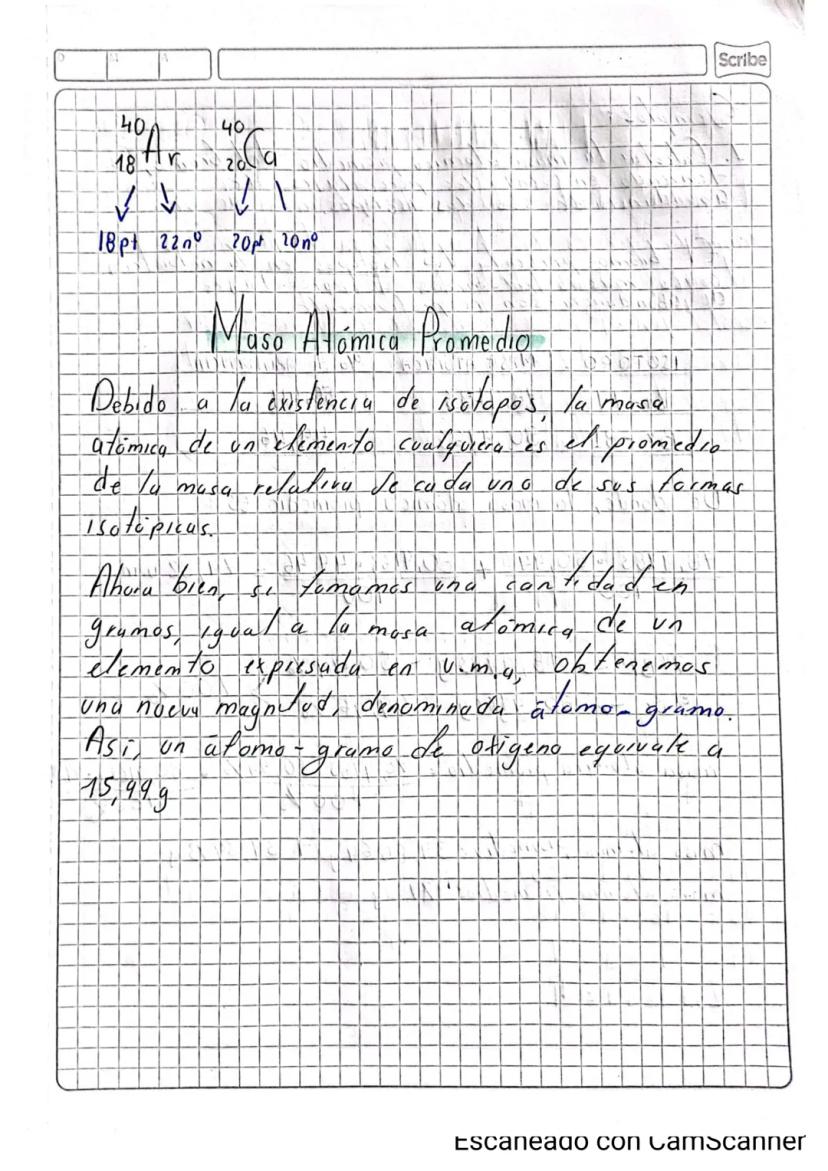 Scribe
40 40
Ar Ca
18 20
18p+ 22n° 20p+ 20n°
Masa Atómica Promedio
Debido a la existencia de isótopos, la masa
atómica de un elemento cualquiera es el promedio
de la masa relativa de cada una de sus formas
isotópicas.
Ahora bien, si tomamos una cantidad en
gramos, igual a la masa atómica de un
elemento expresada en u.m.a, obtenemos
una nueva magnitud, denominada átomo-gramo.
Así, un átomo-gramo de oxigeno equivale a
15,99g
Escaneado con CamScanner